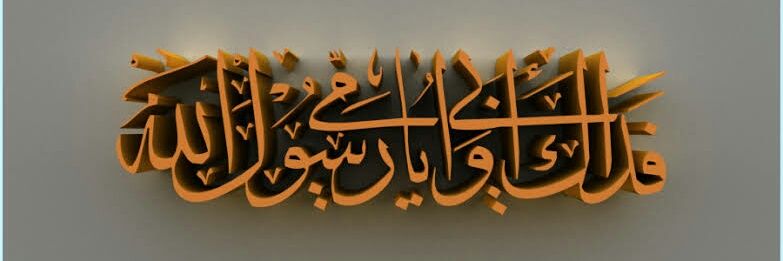 فداك أبي وأمي يا رسول الله